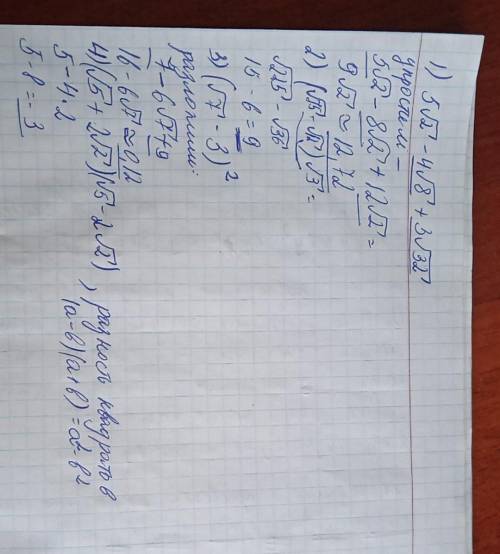 1) 5√2 - 4√8 + 3√32
упростим -
5√2 - 8√2 + 12√2 =
9√2 ≈ 12,72
2) (√75 - √12)√3 =
√225 - √36
15 - 6 = 9
3) (√7 - 3)²
7 - 6√7 + 9
16 - 6√7 ≈ 0,12
4) (√5 + 2√2)(√5 - 2√2), разность квадратов
5 - 4·2 (a-b)(a+b) = a² - b²
5 - 8 = -3